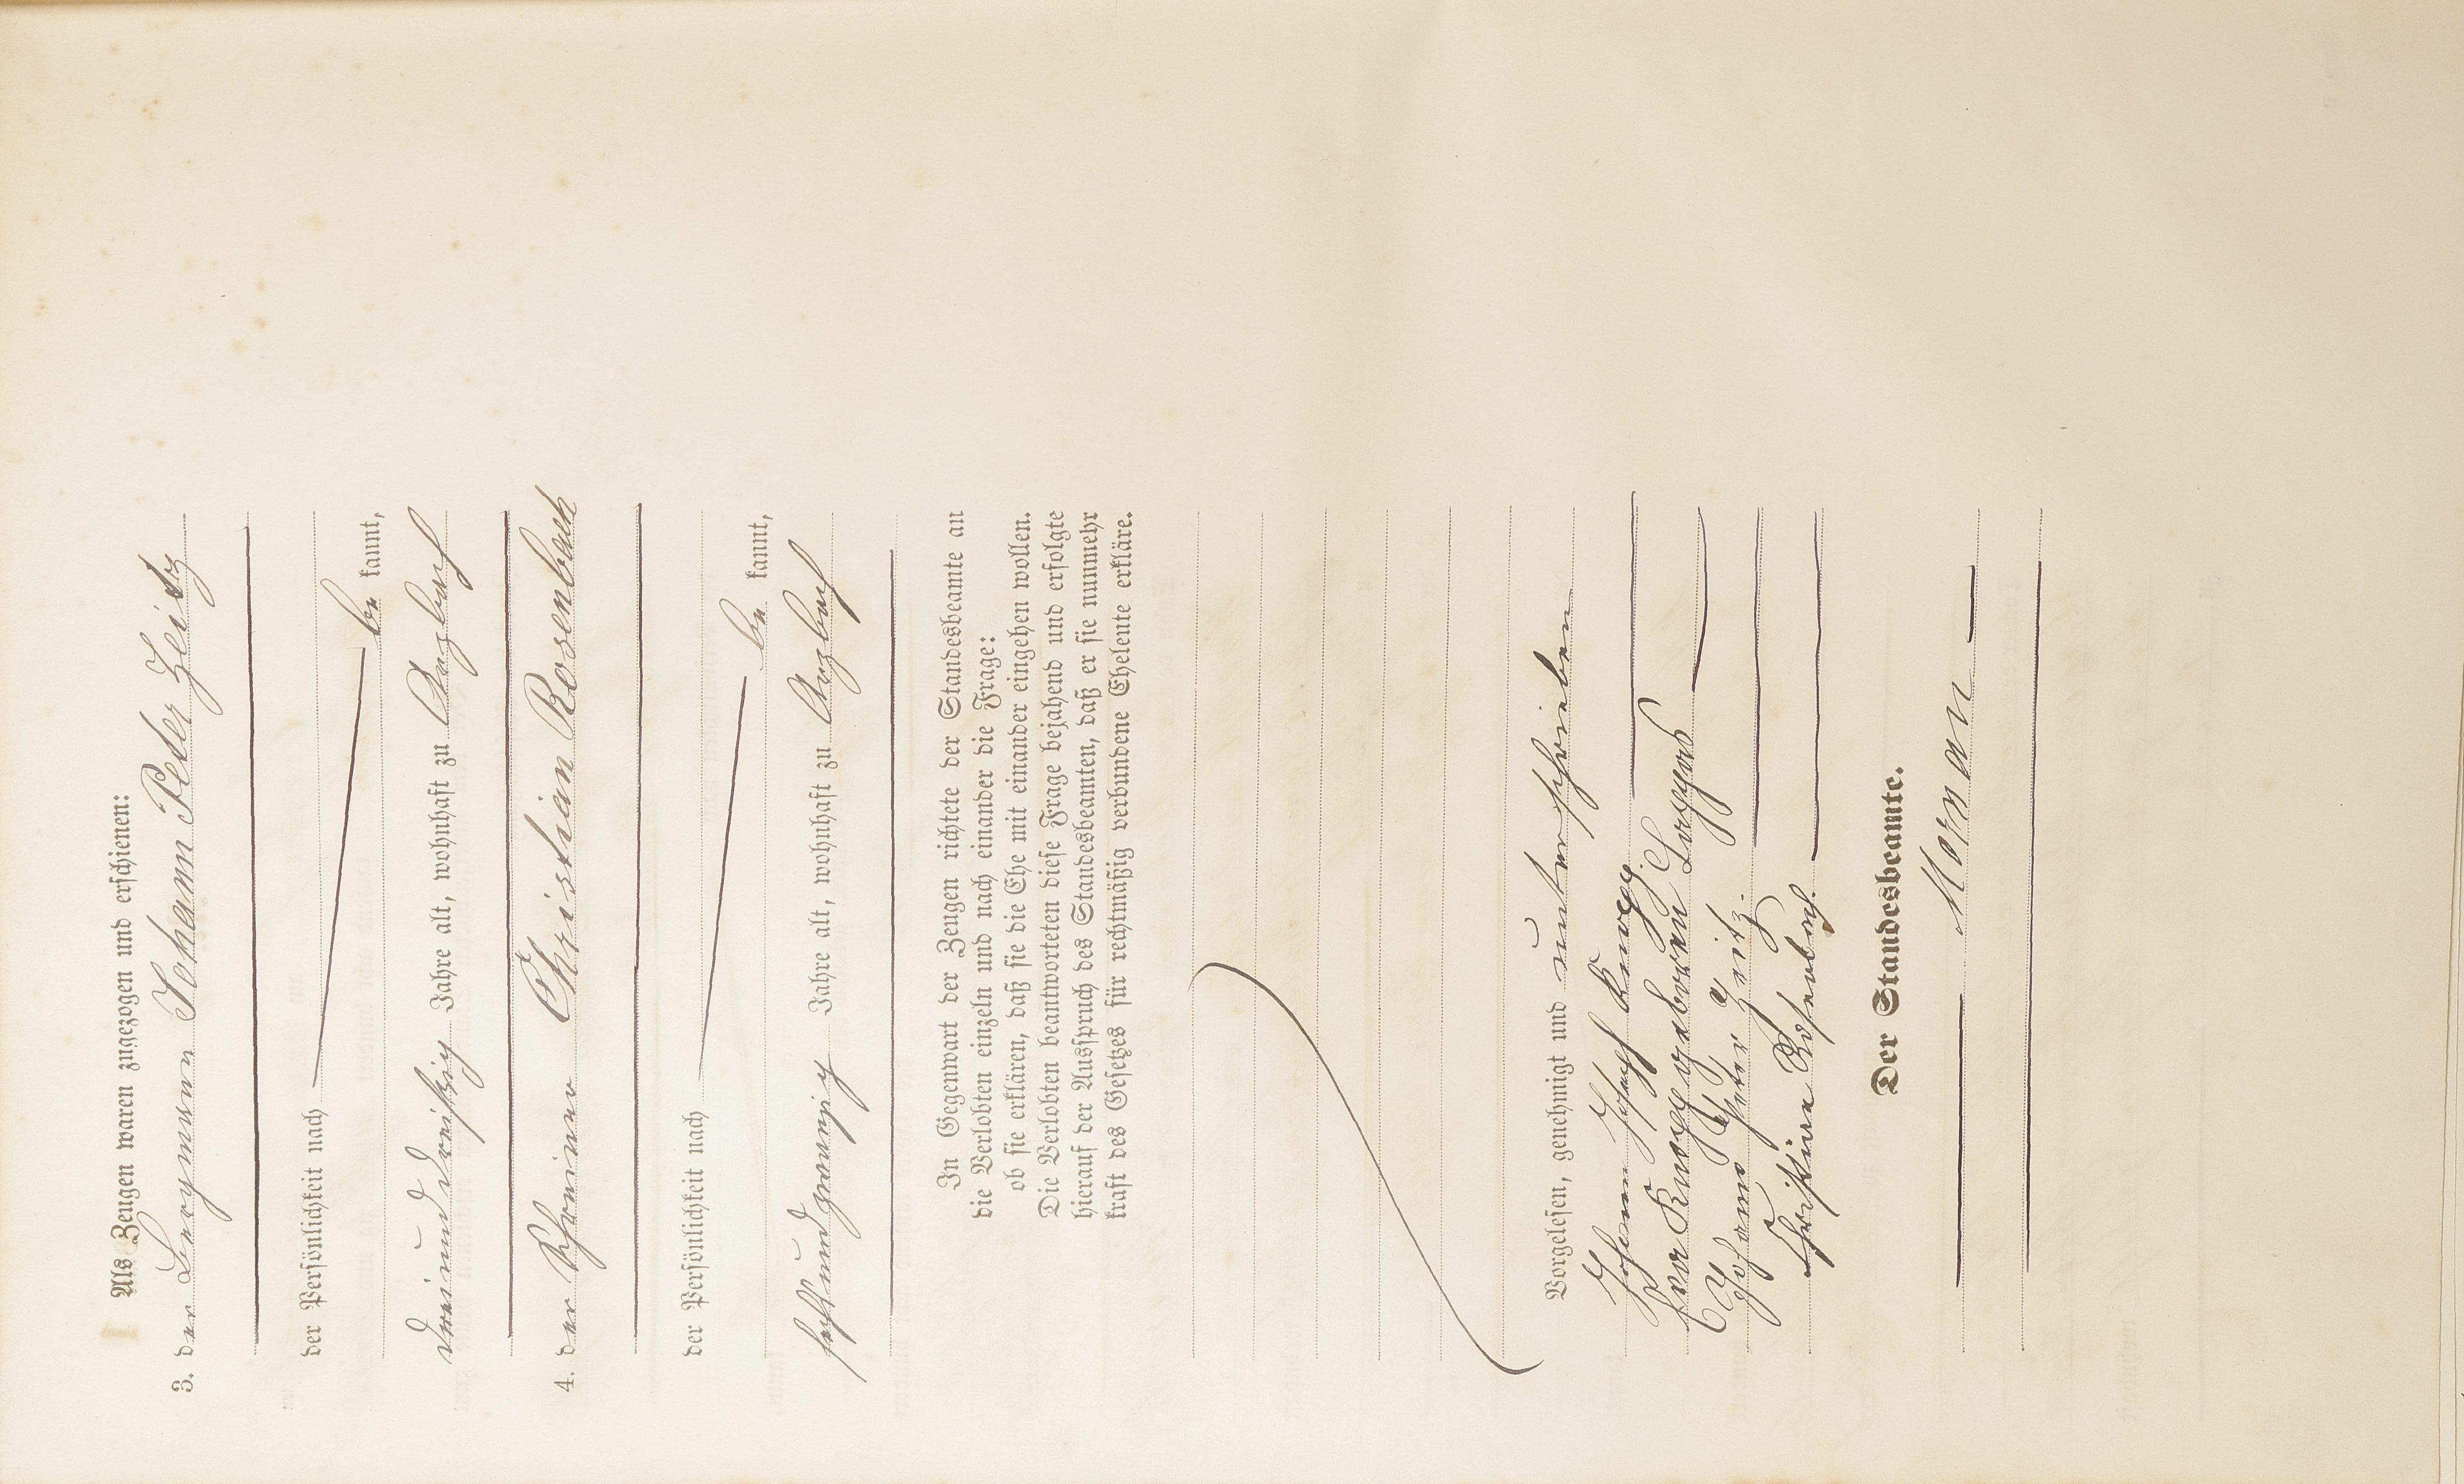 Als Zeugen waren zugezogen und erschienen:
3. der Bergmann Johann Peter Zeitz
der Persönlichkeit nach
be kannt,
dreiunddreißig Jahre alt, wohnhaft zu Aegbach
4. der Schreiner Christian Rosenbach
der Persönlichkeit nach
be kannt,
sechsundzwanzig Jahre alt, wohnhaft zu
In Gegenwart der Zeugen richtete der Standesbeamte an
die Verlobten einzeln und nach einander die Frage:
ob sie erklären, daß sie die Ehe mit einander eingehen wollen.
Die Verlobten beantworteten diese Frage bejahend und erfolgte
hierauf der Ausspruch des Standesbeamten, daß er sie nunmehr
kraft des Gesetzes für rechtmäßig verbundene Eheleute erkläre.
Vorgelesen, genehmigt und unterschrieben
Johann Josef Knopp.
Eva Knopp geboren
Johann Peter Zeitz.
Christian Rosenbach.
Der Standesbeamte.